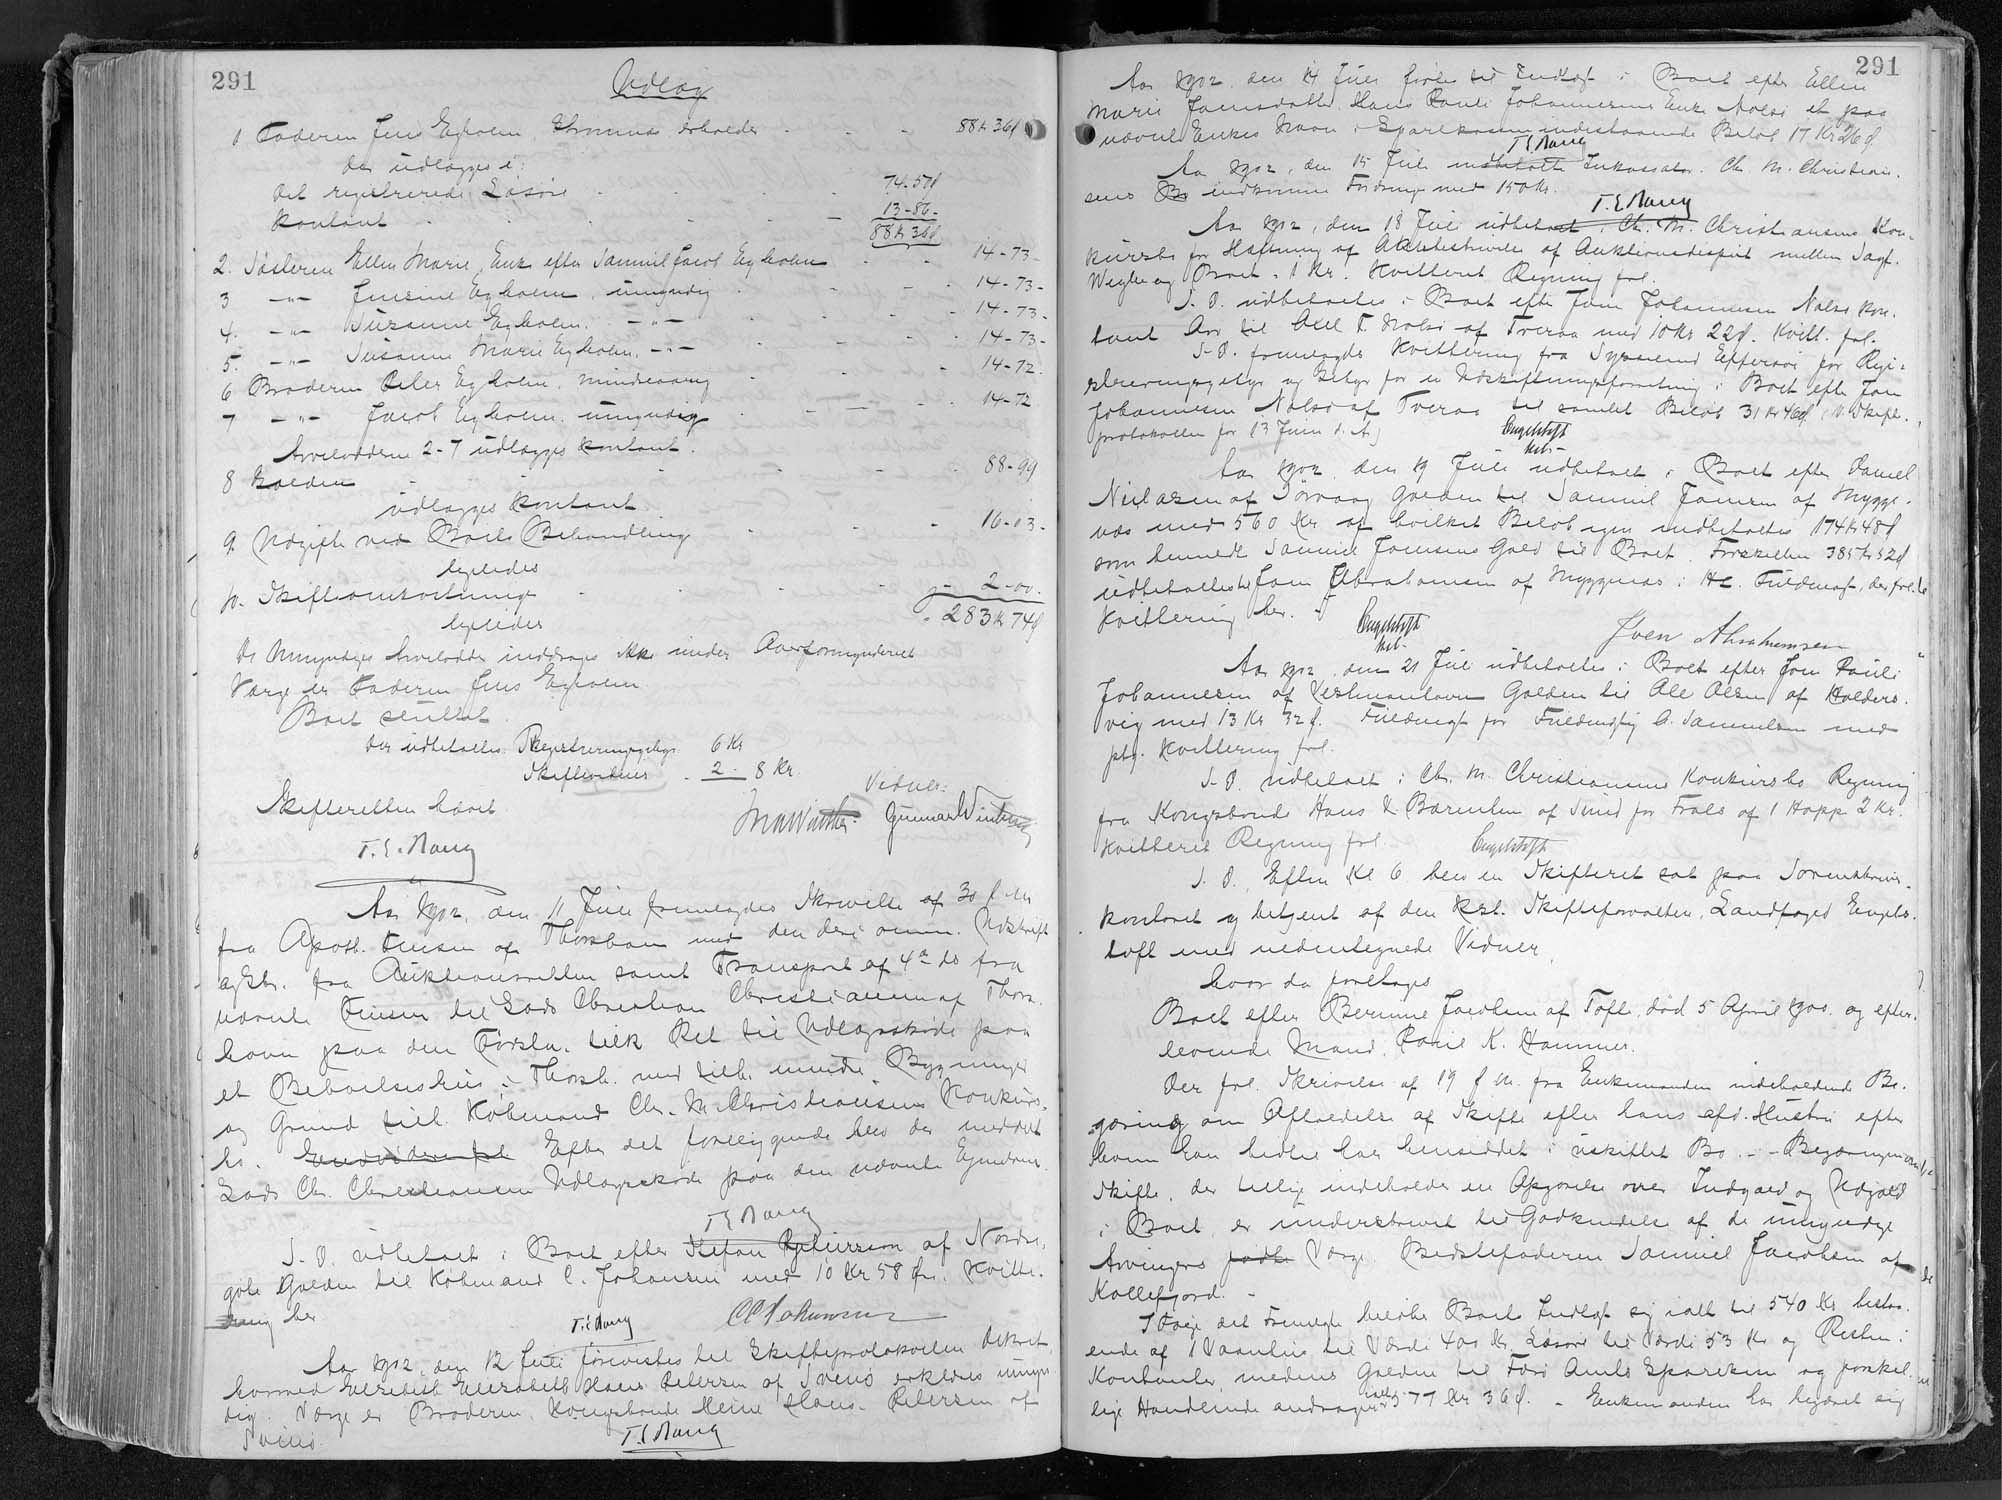 291
Udlæg
1 Faderen Jens Egholm, erholder - - - 88 Kr 36 Ø
der udlægges i:
det registrerede Løsøre - - - 74-50 Ø
kontant - - - 13-86-
88 Kr 36 Ø
2. Søsteren Ellen Marie, Enke efter Samuel Jacob Egholm - - 14-73-
3 -"- Jensine Egholm, umyndig - - - 14-73-
4. -"- Susanne Egholm, -"- - - - 14-73-
5. -"- Susanne Marie Egholm, -"- - - - 14-73-
6 Broderen Peter Egholm, mindreaarig - - - 14-72.
7 -"- Jacob Egholm, umyndig - - - 14-72
Arvelodderne 2-7 udlægges kontant.
8 Gælden - - - 88-99
udlægges kontant
9. Udgifter ved Boets Behandling - - - 16-03-
ligeledes
10. Skifteomkostninger - - - 2-00.
ligeledes
283 Kr 74 Ø
De Umyndiges Arvelodder inddrages ikke under Overformynderiet
Værge er Faderen Jens Egholm
Boet sluttet.
Der udbetaltes: Registreringsgebyr 6 Kr
Skiftevidner - 2 - 8 Kr.
Skifteretten hævet
Vidner:
T. E. Nang
Aar 1902, den 11 Juli fremlagdes Skrivelse af 30 f. M.
fra Apoth. Finsen af Thorshavn med den deri omm. Udskrift
fra Auktionsretten samt Transport af 4de ds fra
nævnte Finsen til Sads Christian Christiansen af Thors-
havn paa den Førstn. tilk. Ret til Udlægsskøde paa
et Beboelseshus i Thorsh. med tilh. mindre Bygninger
og Grund tilh. Købmand Chr. M. Christiansens Konkurs-
bo. Efter det foreliggende blev der meddelt
Sads Chr. Christiansen Udlægsskøde paa den nævnte Ejendom.
T E Nang
S. D. udbetalt i Boet efter Stefan af Nordre-
gøte Gælden til Købmand C. Johansen med 10 Kr 58 Ø. Kvitte-
ring her
T. E Nang
Aar 1902, den 12 Juli forevistes til Skifteprotokollen Dekret,
hvorved Elisabeth Hans Petersen af Svinø erklæres umyn-
dig. Værge er Broderen, Kongsbonde Heine Hans Petersen af
Svinø.
T. E Nang
291
Aar 1902, den 14 Juli førtes til Indtægt i Boet efter Ellen
Marie Joensdatter, Hans Pauli Johannesens Enke, et paa
nævnte Enkes Navn i Sparekassen indestaaende Beløb 17 Kr 26 Ø
T. E. Nang
Aar 1902, den 15 Juli Inkassator. Ch. M. Christian-
sens Bo indkomne Fordringer med 150 Kr.
T. E Nang
Aar 1902, den 18 Juli udbetalt i Ch. M. Christiansens Kon-
kursbo for Hæftning af Aktstykker af Auktionsdisput mellem Sagf.
og Boet. 1 Kr. Kvitteret Regning frl.
S. D. udbetaltes i Boet efter Joen Johannesen Nolsø kon-
tant Arv til Axel T. Nolsø af Tveraa med 10 Kr 22 Ø. Kvitt. frl.
S. D. fremlagdes Kvittering fra Sysselmd Effersøe for Regi-
streringsgebyr og Gebyr for en Udskiftningsforretning i Boet efter Joen
Johannesen Nolsø af Tveraa til samlet Beløb 31 Kr 46 Ø (v. Skifte-
protokollen for 13 Juni d. A.)
Engelstoft
kst.
Aar 1902, den 19 Juli udbetalt i Boet efter Daniel
Nielasen af Sørvaag Gælden til Samuel Joensen af Mygge-
næs med 560 Kr af hvilket Beløb igen indbetaltes 174 Kr 48 Ø
som bemeldte Samuel Joensens Gæld til Boet. Forskellen 385 Kr 52 Ø
udbetaltes til Joen Abrahamsen af Myggenæs i H. t. Fuldmagt, der frl.
Kvittering her.
Engelstoft
kst.
Joen Abrahamsen
Aar 1902, den 21 Juli udbetaltes i Boet efter Joen Pauli
Johannesen af Vestmanhavn Gælden til Ole Olsen af Halders-
vig med 13 Kr 32 Ø. Fuldmagt for Fuldmægtig A. Samuelsen med
ptg. Kvittering frl.
S. D. udbetalt i Ch. M. Christiansens Konkursbo Regning
fra Kongsbonde Hans D. Bærentsen af Sund for Fragt af 1 Hoppe 2 Kr.
Kvitteret Regning frl.
Engelstoft
S. D. Efterm. Kl 6 blev en Skifteret sat paa Sorenskriver-
kontoret og betjent af den kst. Skifteforvalter, Landfoged Engels-
toft med nedentegnede Vidner,
hvor da foretages
Boet efter Jacobsen af Tofte, død 5 April 1900 og efter-
levende Mand, Poul K. Hammer.
Der frl. Skrivelse af 19 f. M. fra Enkemanden indeholdende Be-
gæring om Afholdelse af Skifte efter hans afd. Hustru efter
hvem han hidtil har hensiddet i uskiftet Bo. - Begæringen om
Skifte, der tillige indeholder en Opgørelse over Indgæld og Udgæld
i Boet, er underskrevet til Godkendelse af de umyndige
Arvingers Værge, Bedstefaderen Samuel Jacobsen af
Kollefjord. -
Ifølge det Fremlagte beløber Boets Indtægt sig ialt til 540 Kr bestaa-
ende af 1 Vaanhus til Værdi 400 Kr, Løsøre til Værdi 53 Kr og Resten i
Kontanter, medens Gælden til Færø Amts Sparekasse og forskel-
lige Handlende andrager ialt 577 Kr 36 Ø. - Enkemanden har begæret sig